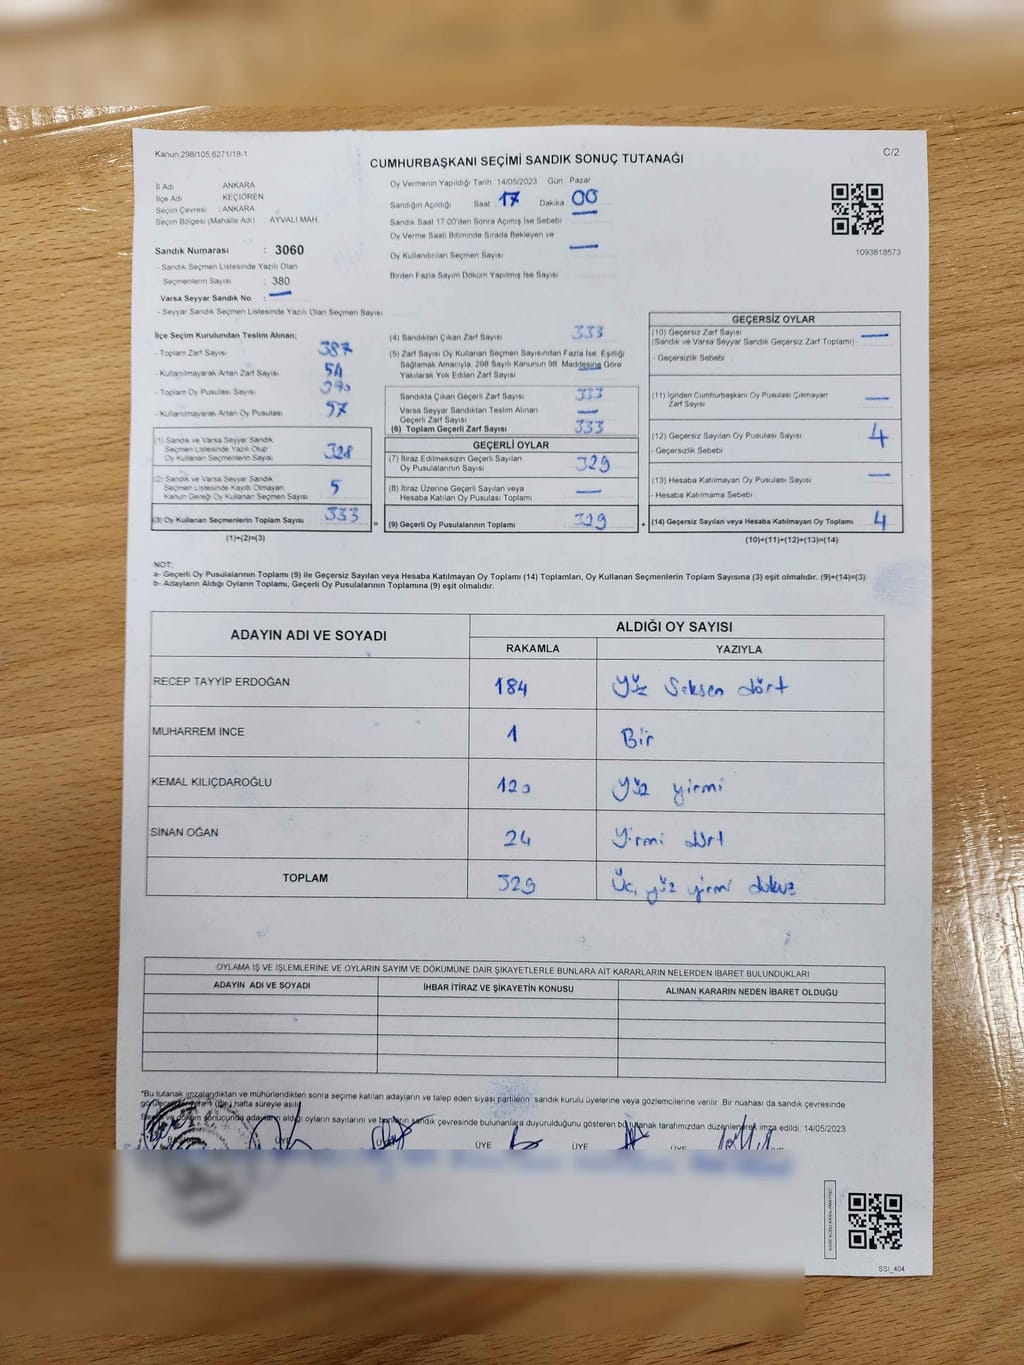 Kanun:298/105,6271/18-1
CUMHURBAŞKANI SEÇİMİ SANDIK SONUÇ TUTANAĞI
C/2
İl Adı ANKARA
İlçe Adı KEÇİÖREN
Seçim Çevresi : ANKARA
Seçim Bölgesi (Mahalle Adı) : AYVALI MAH.
Sandık Numarası : 3060
- Sandık Seçmen Listesinde Yazılı Olan
Seçmenlerin Sayısı : 380
Varsa Seyyar Sandık No : —
- Seyyar Sandık Seçmen Listesinde Yazılı Olan Seçmen Sayısı
Oy Vermenin Yapıldığı Tarih : 14/05/2023 Gün : Pazar
Sandığın Açıldığı Saat 17 Dakika 00
Sandık Saat 17:00'den Sonra Açımış İse Sebebi
Oy Verme Saati Bitiminde Sırada Bekleyen ve
Oy Kullandırılan Seçmen Sayısı —
Birden Fazla Sayım Döküm Yapılmış İse Sayısı
1093818573
İlçe Seçim Kurulundan Teslim Alınan;
- Toplam Zarf Sayısı 387
- Kullanılmayarak Artan Zarf Sayısı 54
- Toplam Oy Pusulası Sayısı 390
- Kullanılmayarak Artan Oy Pusulası 57
(1) Sandık ve Varsa Seyyar Sandık
Seçmen Listesinde Yazılı Olup
Oy Kullanan Seçmenlerin Sayısı 328
(2) Sandık ve Varsa Seyyar Sandık
Seçmen Listesinde Kayıtlı Olmayan
Kanun Gereği Oy Kullanan Seçmen Sayısı 5
(3) Oy Kullanan Seçmenlerin Toplam Sayısı 333 =
(1)+(2)=(3)
(4) Sandıktan Çıkan Zarf Sayısı 333
(5) Zarf Sayısı Oy Kullanan Seçmen Sayısından Fazla İse, Eşitliği
Sağlamak Amacıyla, 298 Sayılı Kanunun 98. Maddesine Göre
Yakılarak Yok Edilen Zarf Sayısı —
Sandıkta Çıkan Geçerli Zarf Sayısı 333
Varsa Seyyar Sandıktan Teslim Alınan
Geçerli Zarf Sayısı —
(6) Toplam Geçerli Zarf Sayısı 333
GEÇERLİ OYLAR
(7) İtiraz Edilmeksizin Geçerli Sayılan
Oy Pusulalarının Sayısı 329
(8) İtiraz Üzerine Geçerli Sayılan veya
Hesaba Katılan Oy Pusulası Toplamı —
(9) Geçerli Oy Pusulalarının Toplamı 329 +
GEÇERSİZ OYLAR
(10) Geçersiz Zarf Sayısı
(Sandık ve Varsa Seyyar Sandık Geçersiz Zarf Toplamı) —
- Geçersizlik Sebebi
(11) İçinden Cumhurbaşkanı Oy Pusulası Çıkmayan
Zarf Sayısı —
(12) Geçersiz Sayılan Oy Pusulası Sayısı 4
- Geçersizlik Sebebi
(13) Hesaba Katılmayan Oy Pusulası Sayısı —
- Hesaba Katılmama Sebebi
(14) Geçersiz Sayılan veya Hesaba Katılmayan Oy Toplamı 4
(10)+(11)+(12)+(13)=(14)
NOT:
a- Geçerli Oy Pusulalarının Toplamı (9) ile Geçersiz Sayılan veya Hesaba Katılmayan Oy Toplamı (14) Toplamları, Oy Kullanan Seçmenlerin Toplam Sayısına (3) eşit olmalıdır. (9)+(14)=(3)
b- Adayların Aldığı Oyların Toplamı, Geçerli Oy Pusulalarının Toplamına (9) eşit olmalıdır.
ADAYIN ADI VE SOYADI ALDIĞI OY SAYISI
RAKAMLA YAZIYLA
RECEP TAYYİP ERDOĞAN 184 Yüz Seksen dört
MUHARREM İNCE 1 Bir
KEMAL KILIÇDAROĞLU 120 Yüz yirmi
SİNAN OĞAN 24 Yirmi dört
TOPLAM 329 Üç yüz yirmi dokuz
OYLAMA İŞ VE İŞLEMLERİNE VE OYLARIN SAYIM VE DÖKÜMÜNE DAİR ŞİKAYETLERLE BUNLARA AİT KARARLARIN NELERDEN İBARET BULUNDUKLARI
ADAYIN ADI VE SOYADI İHBAR İTİRAZ VE ŞİKAYETİN KONUSU ALINAN KARARIN NEDEN İBARET OLDUĞU
*Bu tutanak imzalandıktan ve mühürlendikten sonra seçime katılan adayların ve talep eden siyasi partilerin sandık kurulu üyelerine veya gözlemcilerine verilir. Bir nüshası da sandık çevresinde
hafta süreyle asılır.
sonucunda adayların aldığı oyların sayılarını ve bunların sandık çevresinde bulunanlara duyurulduğunu gösteren bu tutanak tarafımızdan düzenlenerek imza edildi. 14/05/2023
ÜYE ÜYE ÜYE ÜYE
SSİ_404